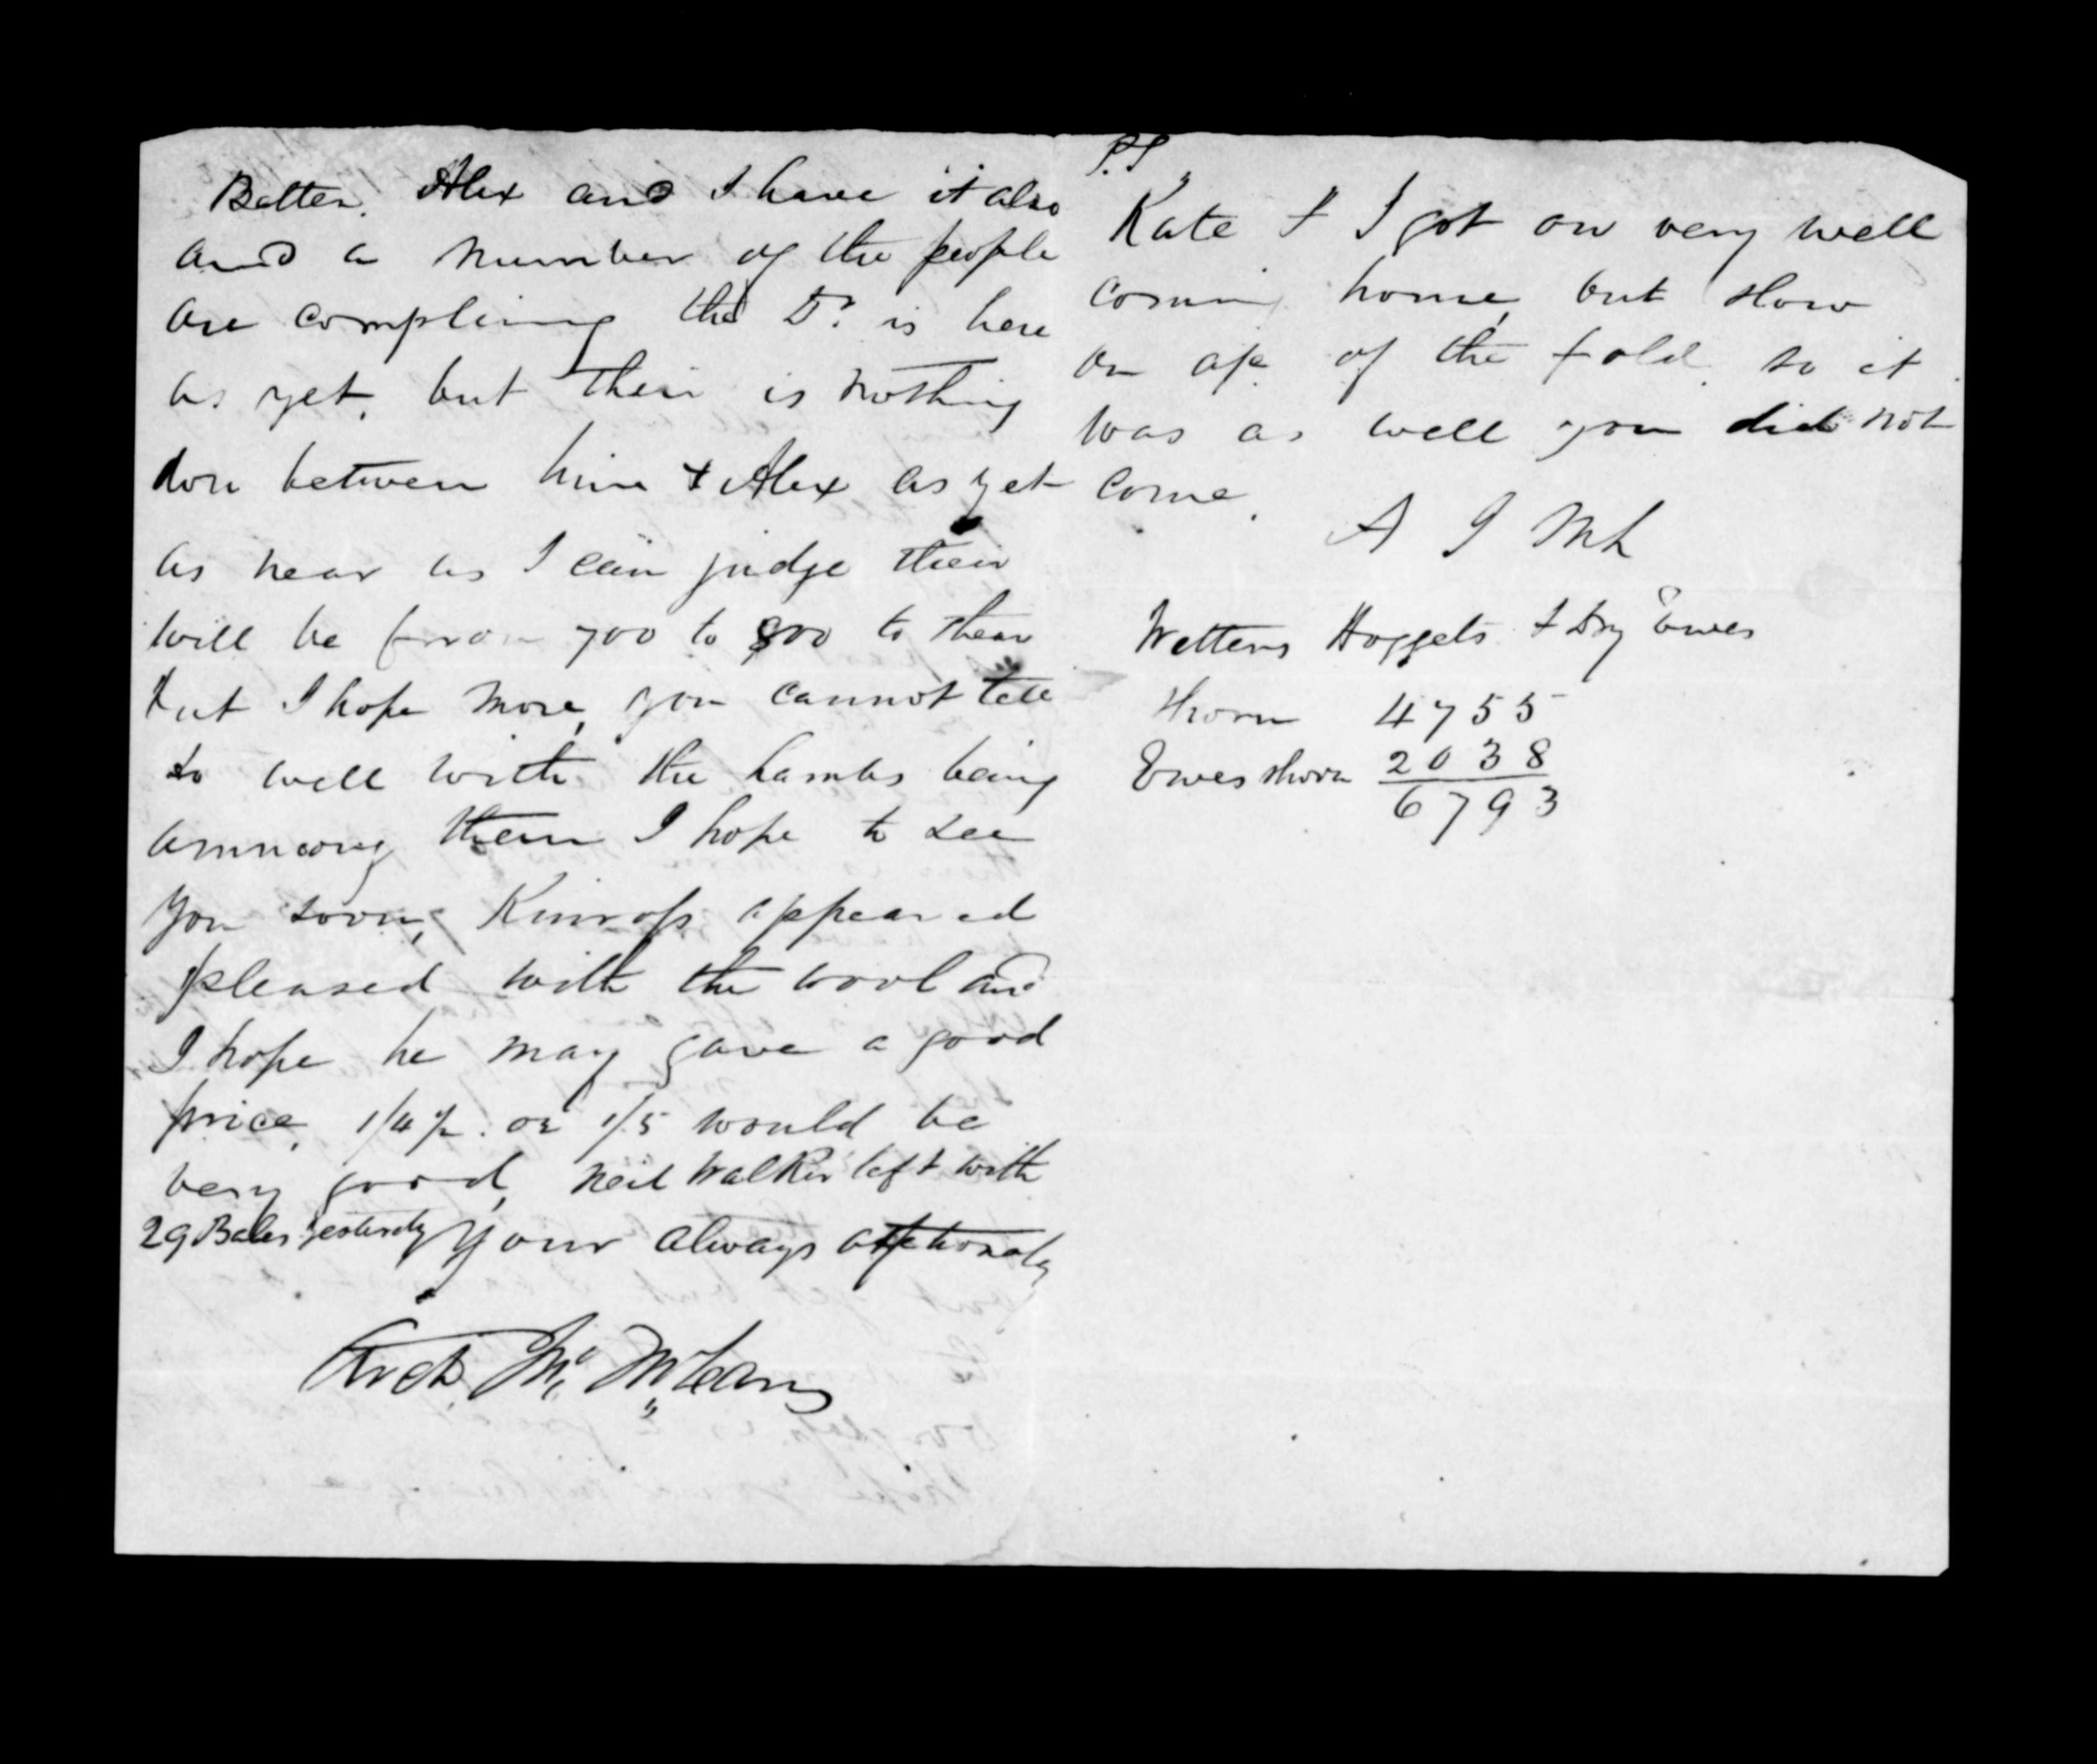 Better. Alex and I have it also
and a number of the people
are complining the Dr. is here
as yet, but their is nothing
don between him & Alex as yet
as near as I can judge their
will be from 700 to 800 to shear
but I hope more, you cannot tell
so well with the Lambs being
amnoong them I hope to see
you soon, Kinross appeared
pleased with the wool and
I hope he may gave a good
price, 1/4½. or 1/5 would be
very good, Neil Walker left with
29 Bales yesterdy Your always afftionaly
Arch. Mc. McLean
P.S.
Kate & I got on very well
coming home, but slow
on a/c of the fold. so it
was as well you did not
come.
A J McL
Wetters Hoggets & Dry Ewes
Shorn 4755
Ewes shorn 2038
6793